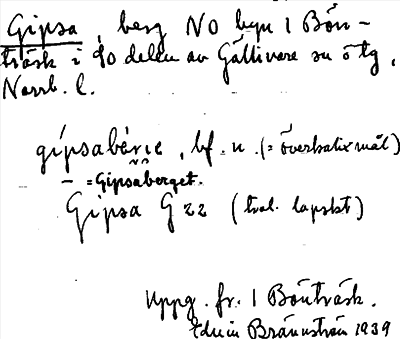 Gipsa, berg NO byn 1 Bön-
träsk i So delen av Gällivere sn ö tg,
Norrb. l.
gípsabérịe, bf. n. (= överkalixmål)
— = Gipsaberget.
Gipsa G 22 (tral. lapskt)
Uppg. fr. 1 Bönträsk.
Edvin Brännström 1939